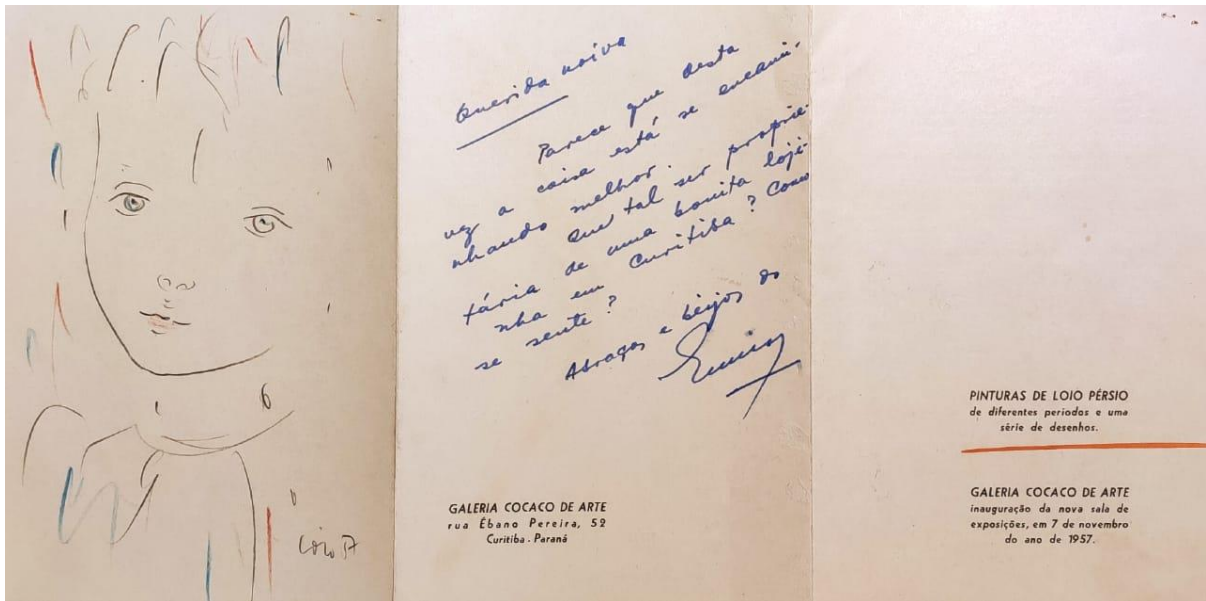 Loio 57
Querida noiva
Parece que desta
vez a coisa está se encami-
nhando melhor.
Que tal ser proprie-
tária de uma bonita loji-
nha em Curitiba? Como
se sente?
Abraços e beijos do
GALERIA COCACO DE ARTE
rua Ébano Pereira, 52
Curitiba - Paraná
PINTURAS DE LOIO PÉRSIO
de diferentes períodos e uma
série de desenhos.
GALERIA COCACO DE ARTE
inauguração da nova sala de
exposições, em 7 de novembro
do ano de 1957.